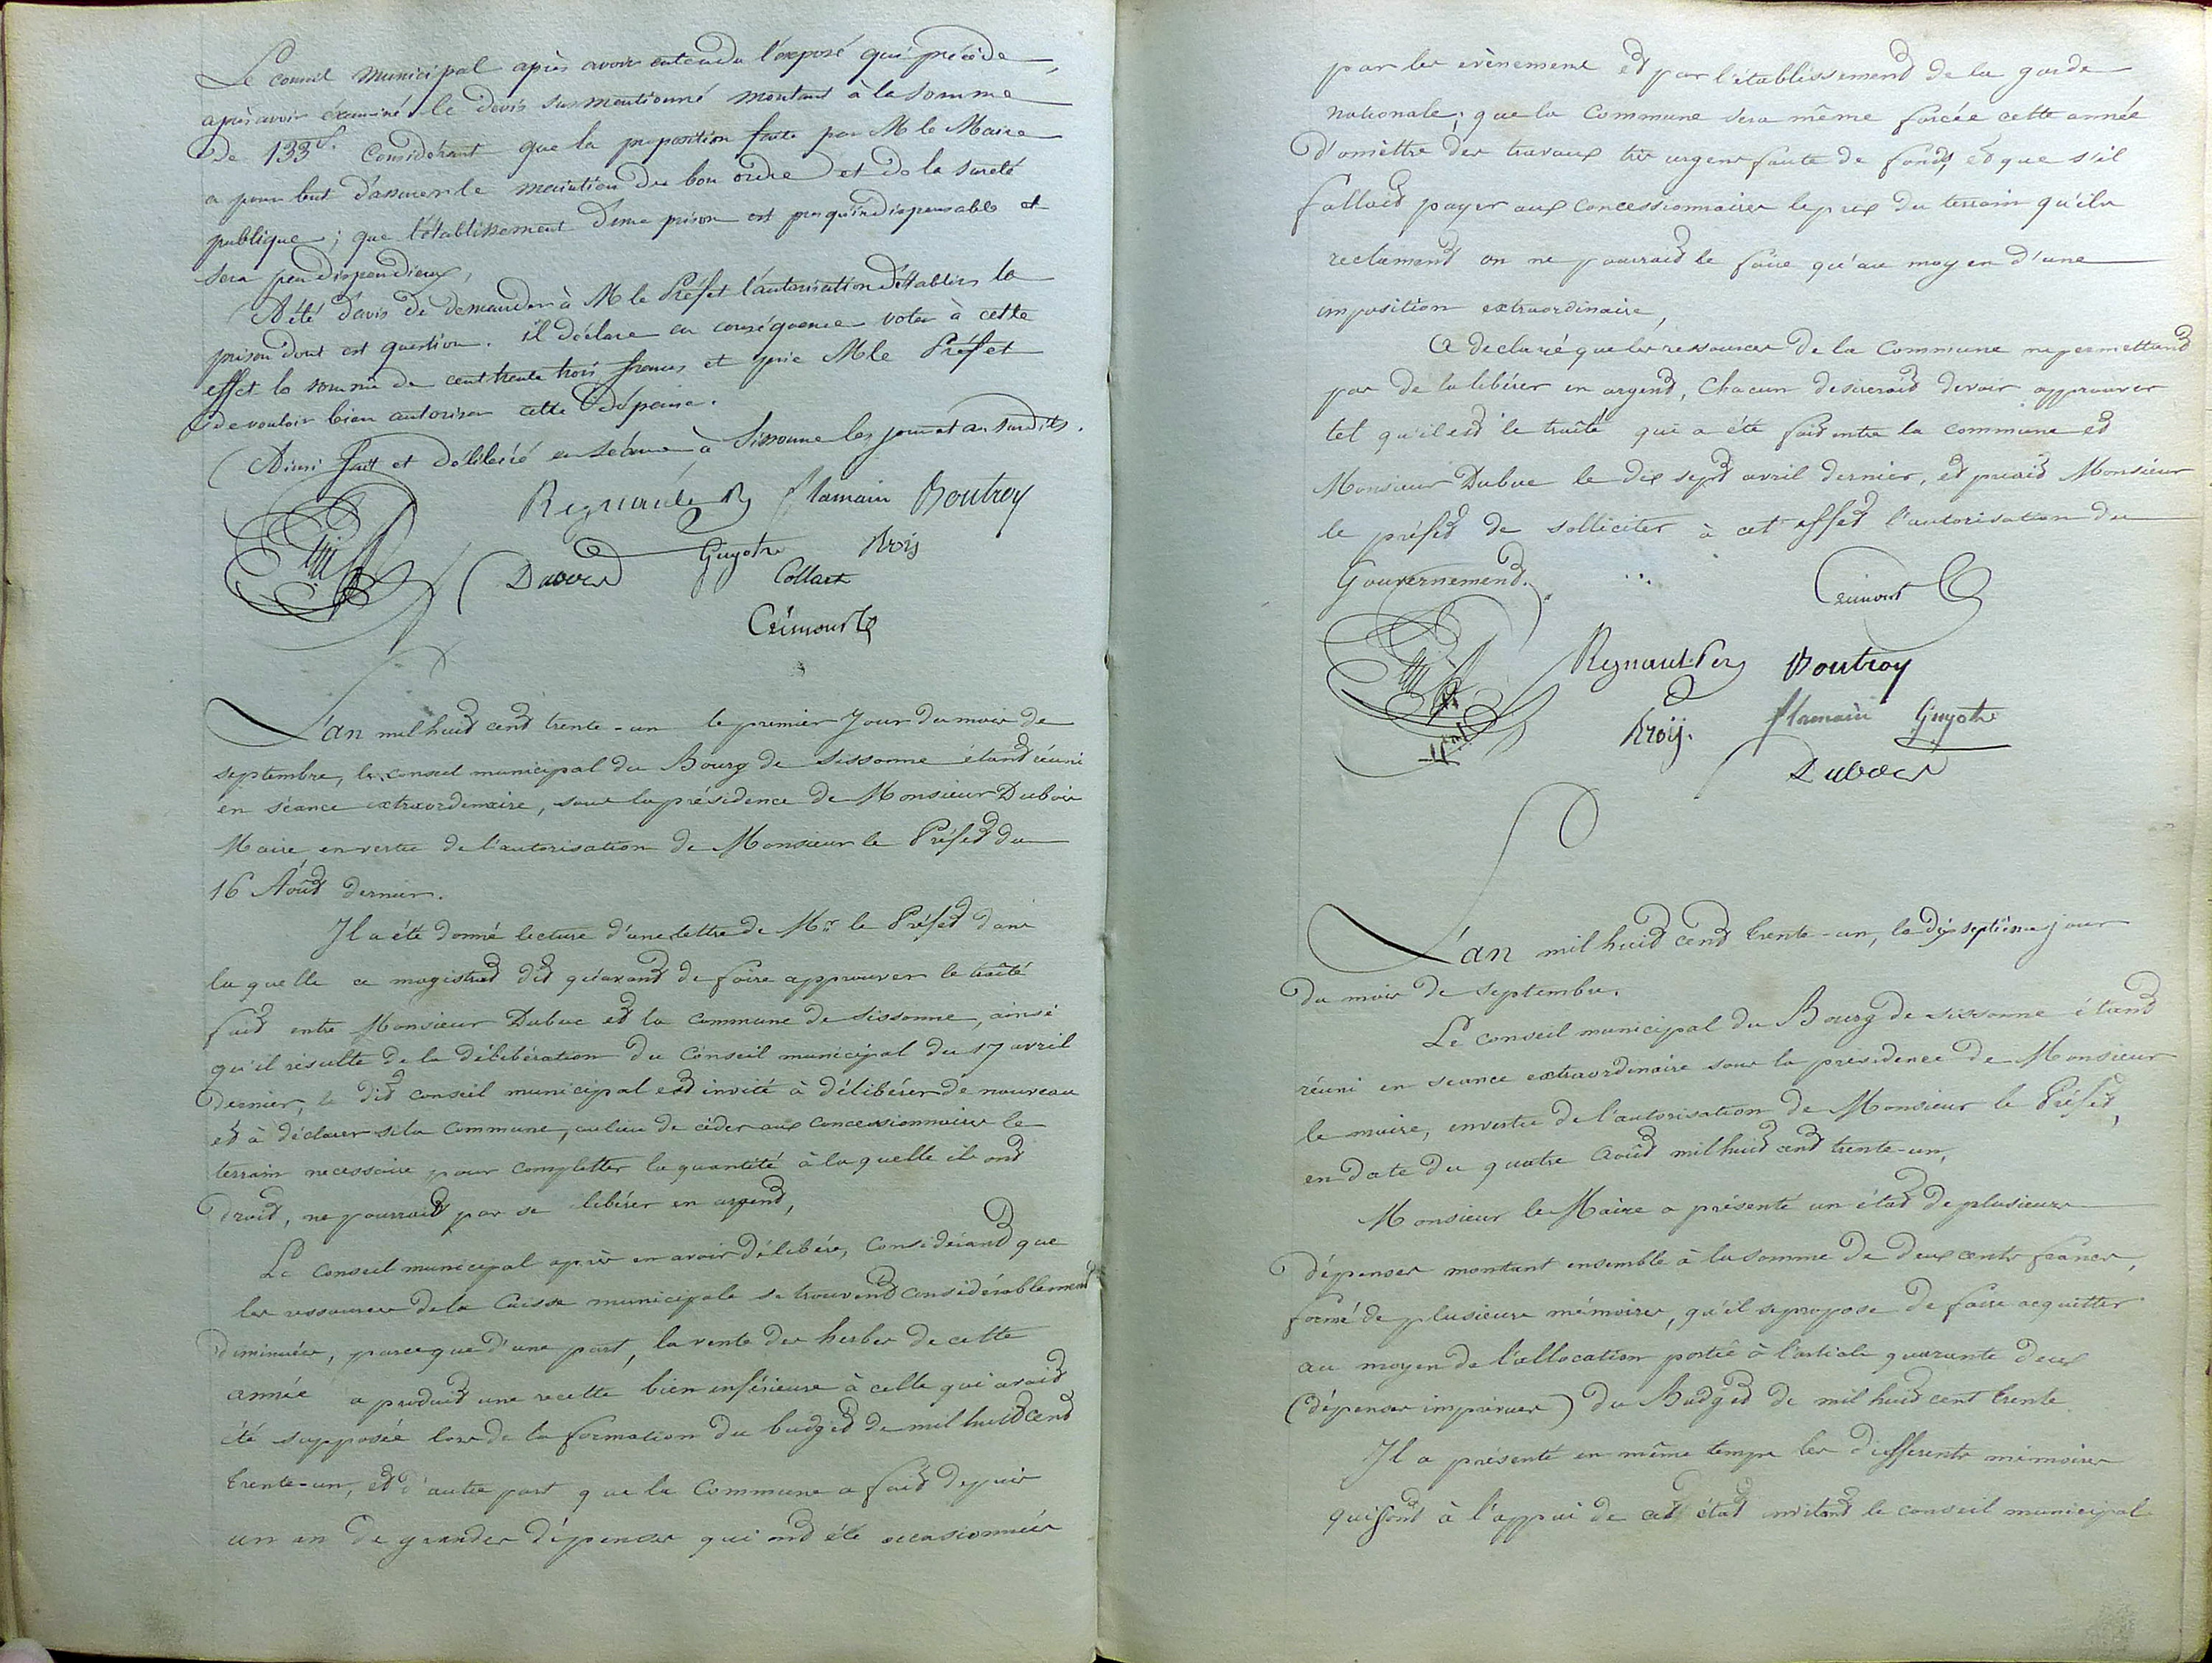 Le conseil municipal après avoir entendu l'exposé qui précède,
après avoir éxaminé le devis susmentionné montant à la somme
de 133 f. Considérant que la proposition faite par M le Maire
a pour but d'assurer le maintien du bon ordre et de la sureté
publique ; que l'établissement d'une prison est presqu'indispensable et
sera peu dispendieux,
A été d'avis de demander à M le Préfet l'autorisation d'établir la
prison dont est question. il déclare en conséquence voter à cette
effet la somme de cent trente trois francs et prie M le Préfet
de vouloir bien autoriser cette dépense.
Ainsi fait et délibéré en séance à Sissonne les jour et an susdits.
Regnault flamain Boutroy
Guyotte Kroij
Dubois Collart
Crimont
L'an mil huit cent trente-un le premier Jour du mois de
septembre, le conseil municipal du Bourg de Sissonne étant réuni
en séance extraordinaire, sous la présidence de Monsieur Dubois
Maire en vertu de l'autorisation de Monsieur le Préfet du
16 Août dernier.
Il a été donné lecture d'une lettre de Mr le Préfet dans
laquelle ce magistrat dit qu'avant de faire approuver le traité
fait entre Monsieur Dubuc et la commune de Sissonne, ainsi
qu'il résulte de la délibération du Conseil municipal du 17 avril
dernier, le dit conseil municipal est invité à délibérer de nouveau
et à déclarer si la Commune, au lieu de céder aux concessionnaires le
terrain necessaire pour completter la quantité à laquelle ils ont
droit, ne pourrait pas se libérer en argent,
Le Conseil municipal après en avoir délibéré, Considérant que
les ressources de la Caisse municipale se trouvent considérablement
diminuées, parceque d'une part, la vente des herbes de cette
année a produit une recette bien inférieure à celle qui avait
été supposée lors de la formation du budget de mil huit cent
trente-un, et d'autre part que la Commune a fait depuis
un an de grandes dépenses qui ont été occasionnées
par les évènemens et par l'établissement de la garde
nationale ; que la Commune sera même forcée cette année
d'omèttre des travaux très urgens faute de fonds, et que s'il
fallait payer aux concessionnaires le prix du terrain qu'ils
reclament on ne pourrait le faire qu'au moyen d'une
imposition extraordinaire,
A declaré que les ressources de la Commune ne permettant
pas de la libérer en argent, Chacun desirerait devoir approuver
tel qu'il est le traité qui a été fait entre la commune et
Monsieur Dubuc le dix sept avril dernier, et priait Monsieur
le préfet de solliciter à cet effet l'autorisation du
Gouvernement.
Crimont
Regnault Boutroy
Kroij. flamain Guyotte
Dubois
L'an mil huit cent trente-un, le dix septième jour
du mois de septembre.
Le conseil municipal du Bourg de sissonne étant
réuni en seance extraordinaire sous la presidence de Monsieur
le maire, en vertu de l'autorisation de Monsieur le Préfet,
en date du quatre août mil huit cent trente-un,
Monsieur le Maire a présenté un état de plusieurs
dépenses montant ensemble à la somme de deux cents francs,
formé de plusieurs mémoires, qu'il se propose de faire acquitter
au moyen de l'allocation portée à l'article quarante deux
(dépenses imprévues) du Budget de mil huit cent trente
Il a présenté en même temps les differents mémoires
qui sont à l'appui de cet état invitant le conseil municipal